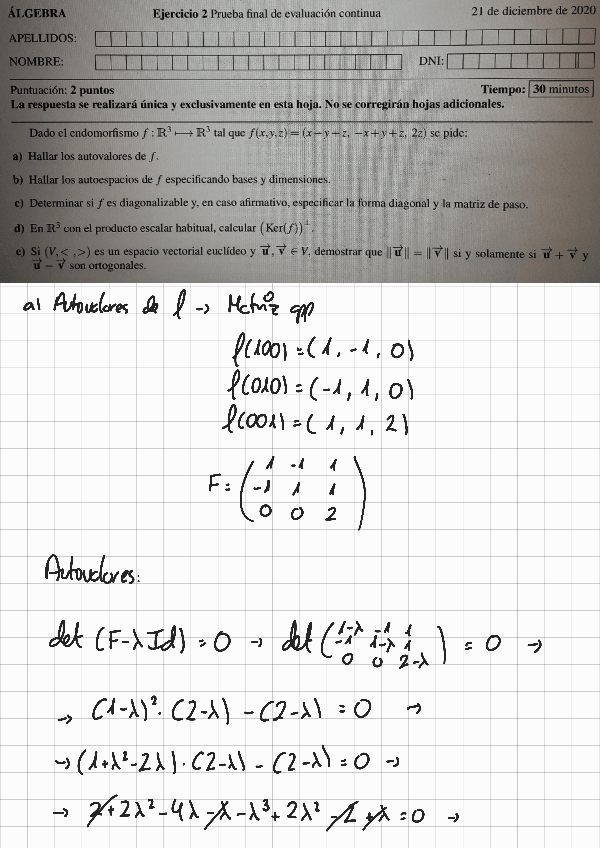 ÁLGEBRA Ejercicio 2 Prueba final de evaluación continua 21 de diciembre de 2020
APELLIDOS:
NOMBRE: DNI:
Puntuación: 2 puntos Tiempo: 30 minutos
La respuesta se realizará única y exclusivamente en esta hoja. No se corregirán hojas adicionales.
Dado el endomorfismo f : ℝ³ ⟼ ℝ³ tal que f(x,y,z) = (x−y+z, −x+y+z, 2z) se pide:
a) Hallar los autovalores de f.
b) Hallar los autoespacios de f especificando bases y dimensiones.
c) Determinar si f es diagonalizable y, en caso afirmativo, especificar la forma diagonal y la matriz de paso.
d) En ℝ³ con el producto escalar habitual, calcular (Ker(f))⊥.
e) Si (V, < , >) es un espacio vectorial euclídeo y u⃗, v⃗ ∈ V, demostrar que ‖u⃗‖ = ‖v⃗‖ si y solamente si u⃗ + v⃗ y
u⃗ − v⃗ son ortogonales.
a) Autovalores de f → Matriz app
f(100) = (1, -1, 0)
f(010) = (-1, 1, 0)
f(001) = (1, 1, 2)
F = ( 1 -1 1
-1 1 1
0 0 2 )
Autovalores:
det (F-λId) = 0 → det ( 1-λ -1 1
-1 1-λ 1
0 0 2-λ ) = 0 →
→ (1-λ)² · (2-λ) - (2-λ) = 0 →
→ (1+λ²-2λ) · (2-λ) - (2-λ) = 0 →
→ 2 + 2λ² - 4λ - λ - λ³ + 2λ² - 2 + λ = 0 →